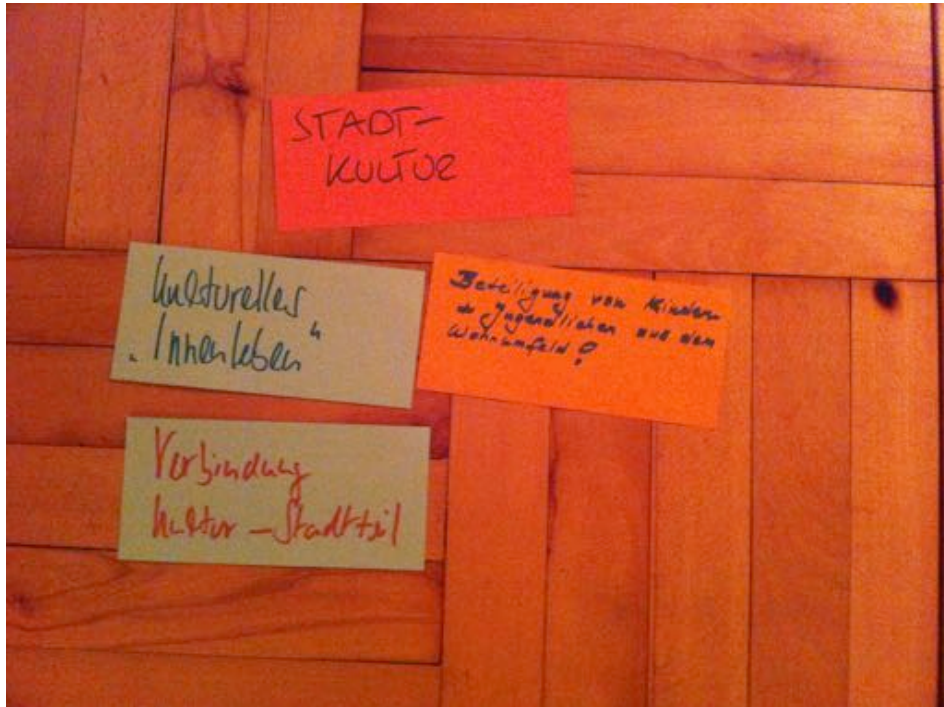 STADT-
KULTUR
Kulturelles
„Innenleben“
Beteiligung von Kindern
+ Jugendlichen aus dem
Wohnumfeld!
Verbindung
Kultur – Stadtteil